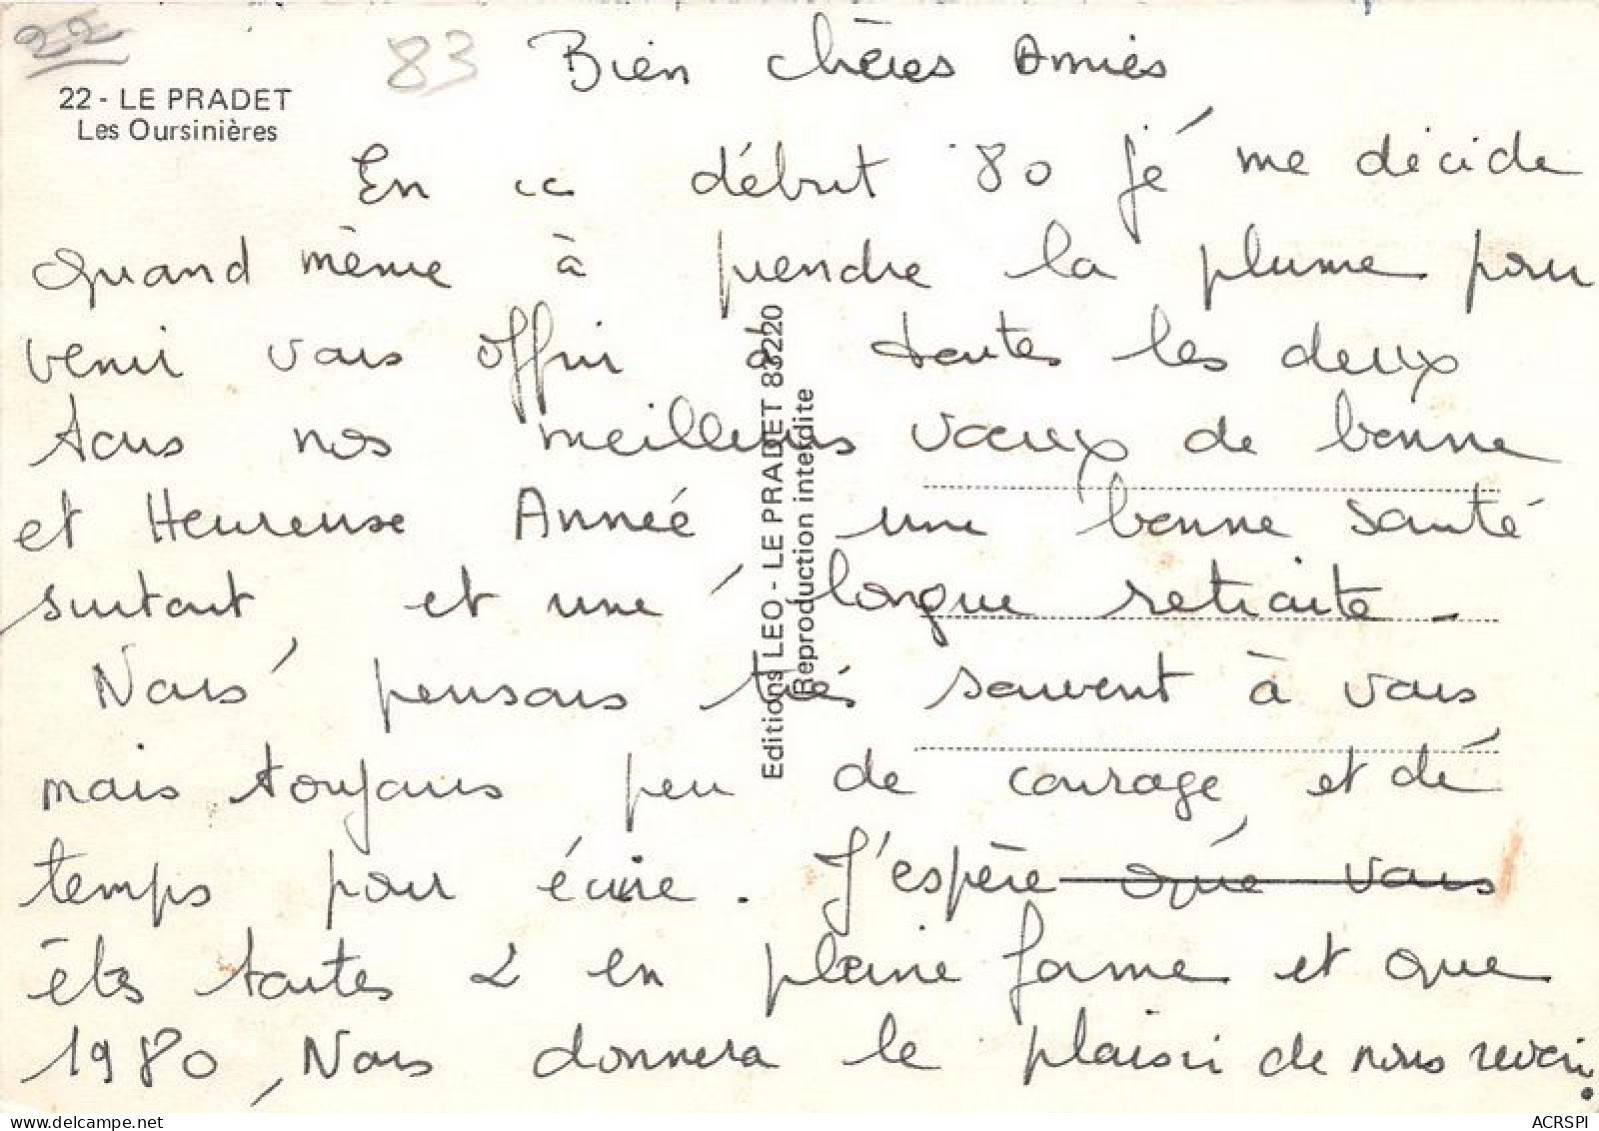 22
83
Bien chères Amies
22 - LE PRADET
Les Oursinières
En ce début 80 je me décide
quand même à prendre la plume pour
venir vous offrir à toutes les deux
tous nos meilleurs vœux de bonne
et Heureuse Année une bonne santé
surtout, et une longue retraite -
Nous pensons très souvent à vous
mais toujours peu de courage et de
temps pour écrire. J'espère que vous
êtes toutes 2 en pleine forme et que
1980, Nous donnera le plaisir de nous revoir.
Editions LEO - LE PRADET 83220
Reproduction interdite
ACRSPI